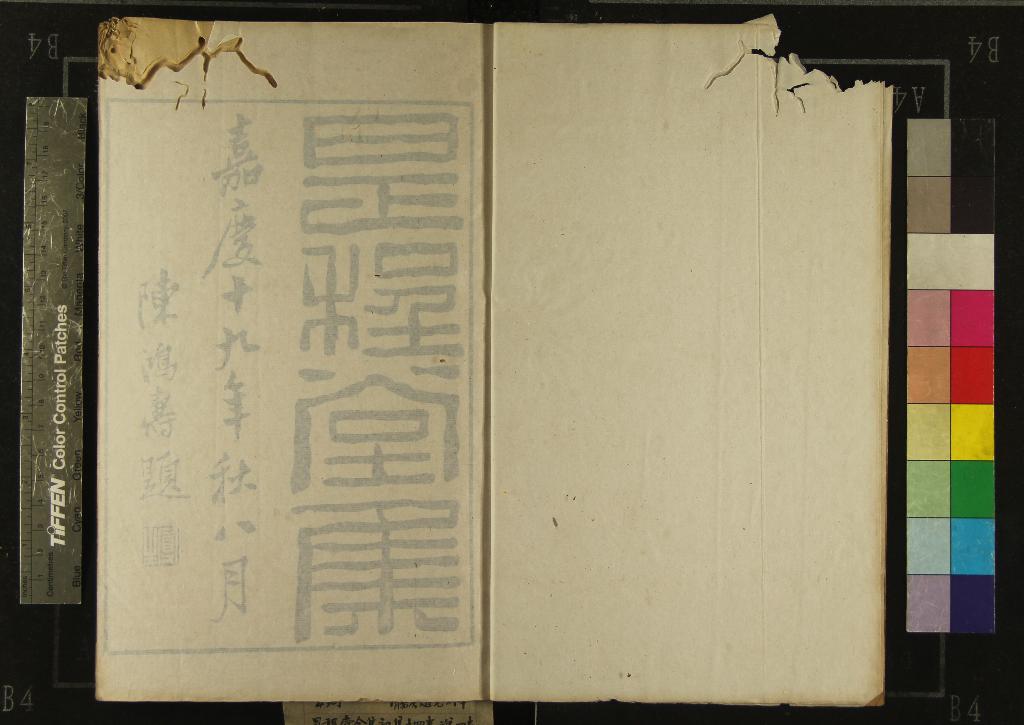 是程堂集
嘉慶十九年秋八月
陳鴻壽題
B4
B4
A4
B4
B4
TIFFEN Color Control Patches
Centimetres
Inches
Blue
Cyan
Green
Yellow
Red
Magenta
White
3/Color
Black